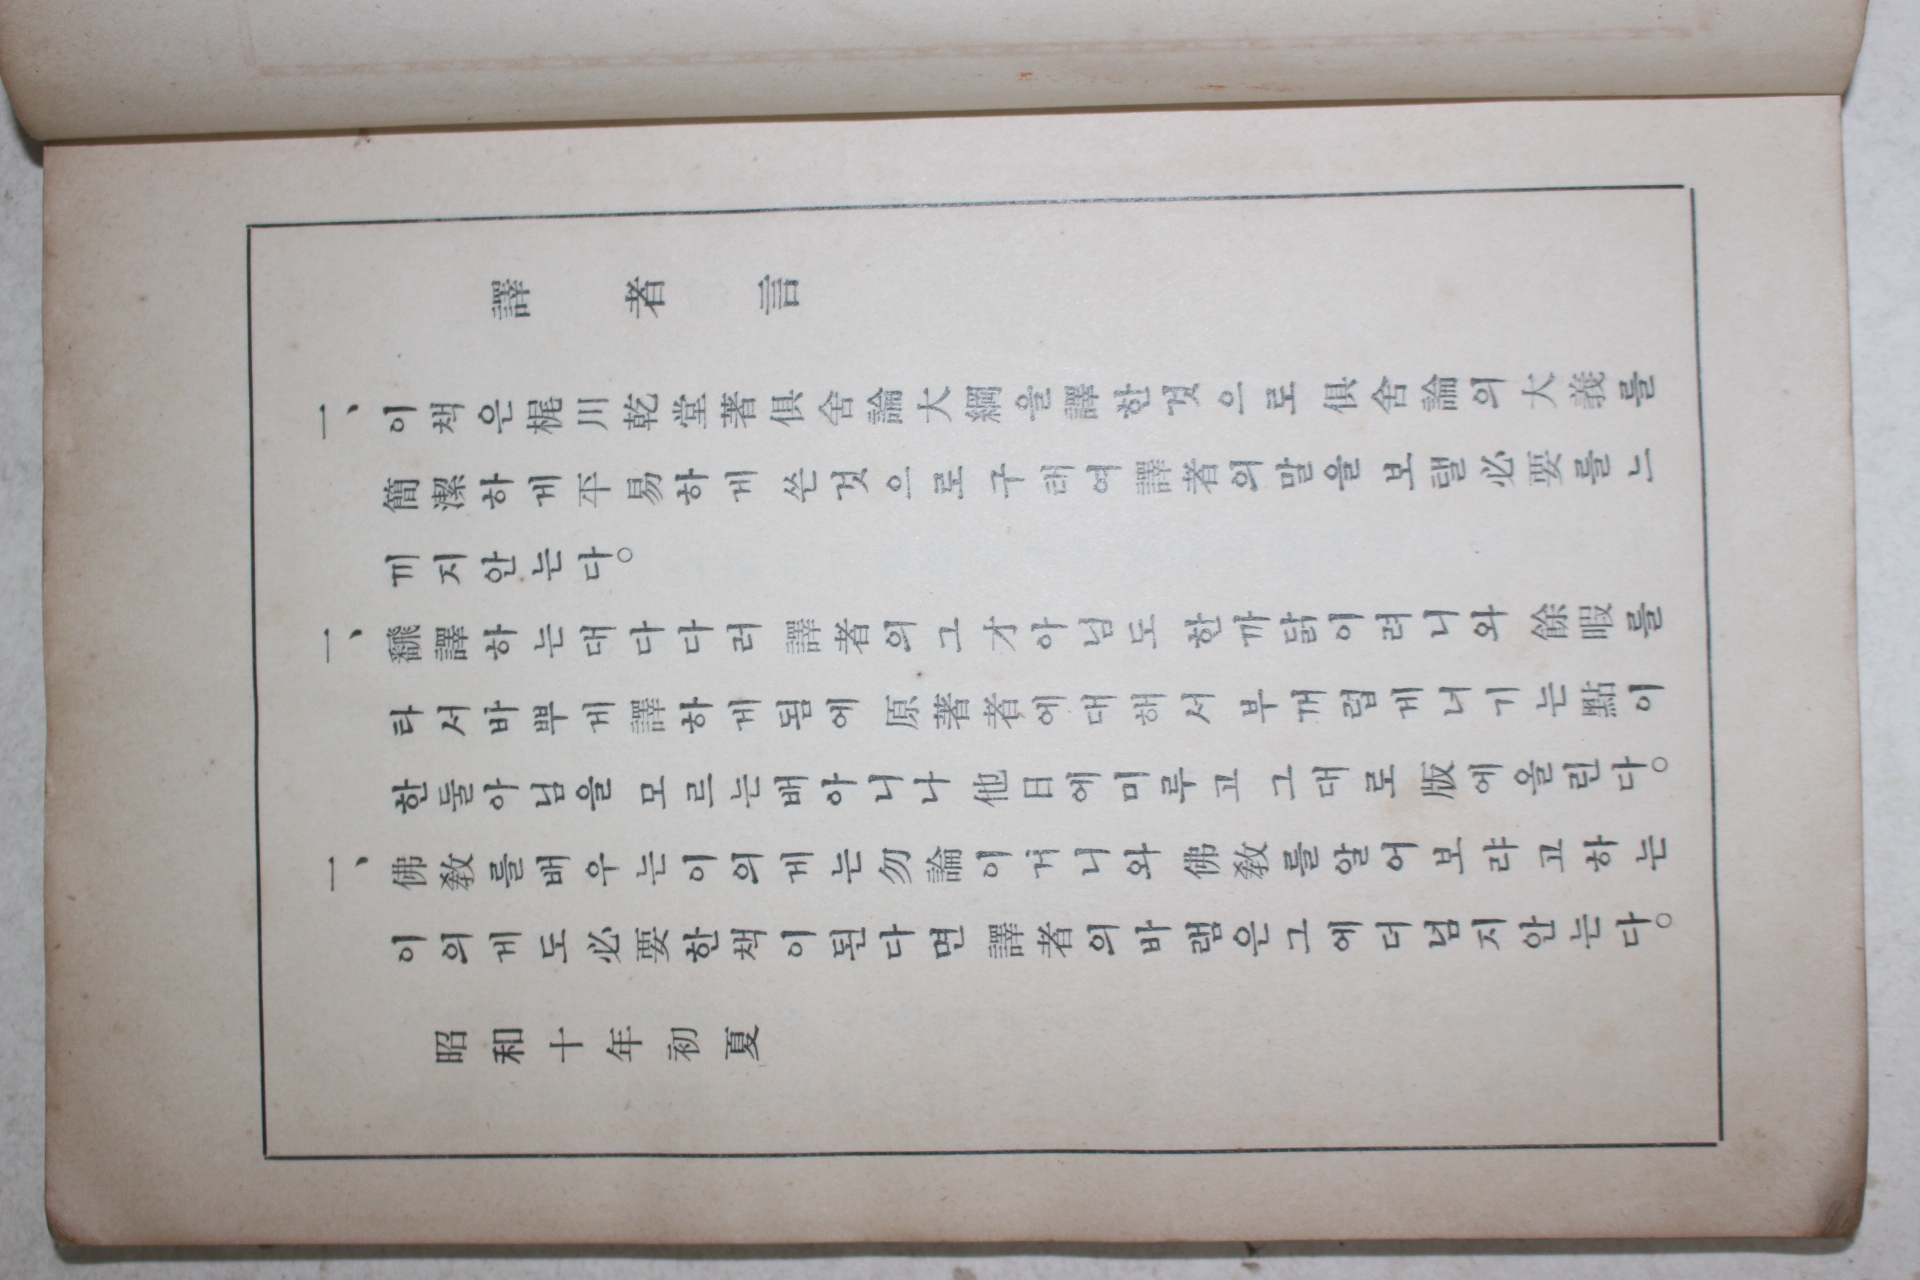 譯者言
一、이책은梶川乾堂著俱舍論大綱을譯한것으로 俱舍論의大義를
簡潔하게平易하게 쓴것으로구태여譯者의말을보탤必要를느
끼지안는다。
一、飜譯하는대다다러 譯者의그才아님도한까닭이려니와 餘暇를
타서바뿌게譯하게됨에 原著者에대해서 부깨럽게녀기는點이
한둘아님을모르는배아니나 他日에미루고그대로 版에올린다。
一、佛敎를배우는이의게는勿論이거니와 佛敎를알어보랴고하는
이의게도必要한책이된다면 譯者의바램은그에더넘지안는다。
昭和十年初夏